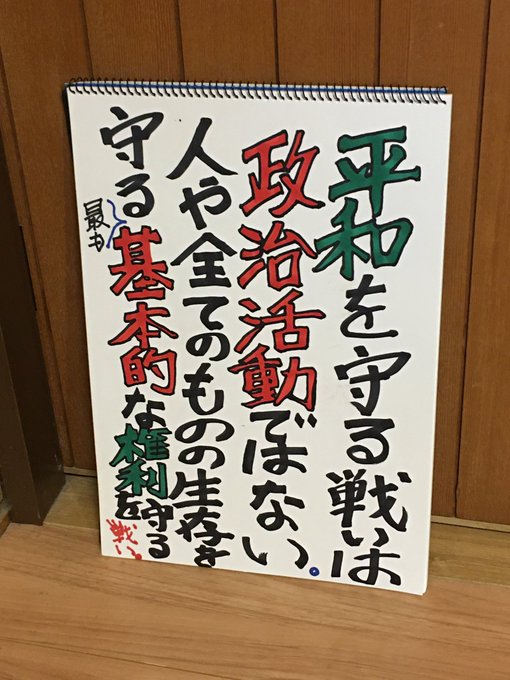 平和を守る戦いは
政治活動ではない。
人や全てのものの生存を
守る最も基本的な権利を守る
戦い。